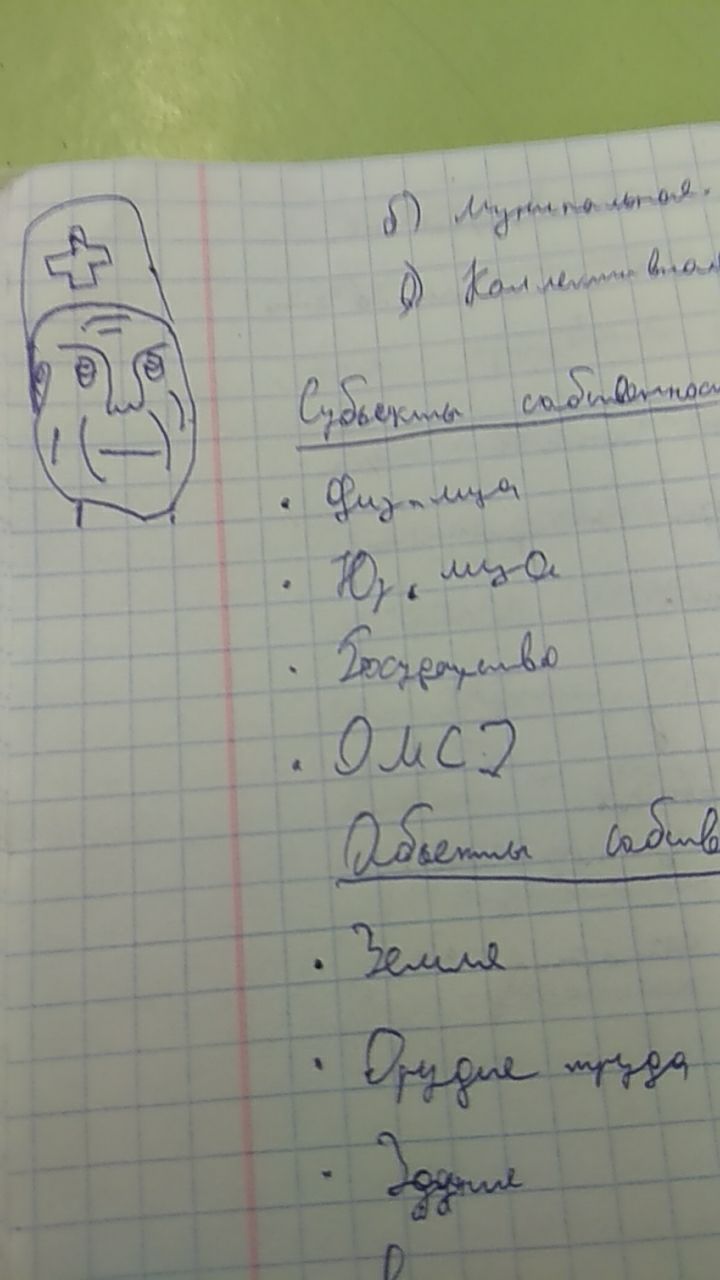 б) Муниципальная.
в) Коллективная
Субъекты собственнос
· Физ. лица
· Юр. лица
· Государство
· ОМСУ
Объекты собств
· Земля
· Орудие труда
· Здание